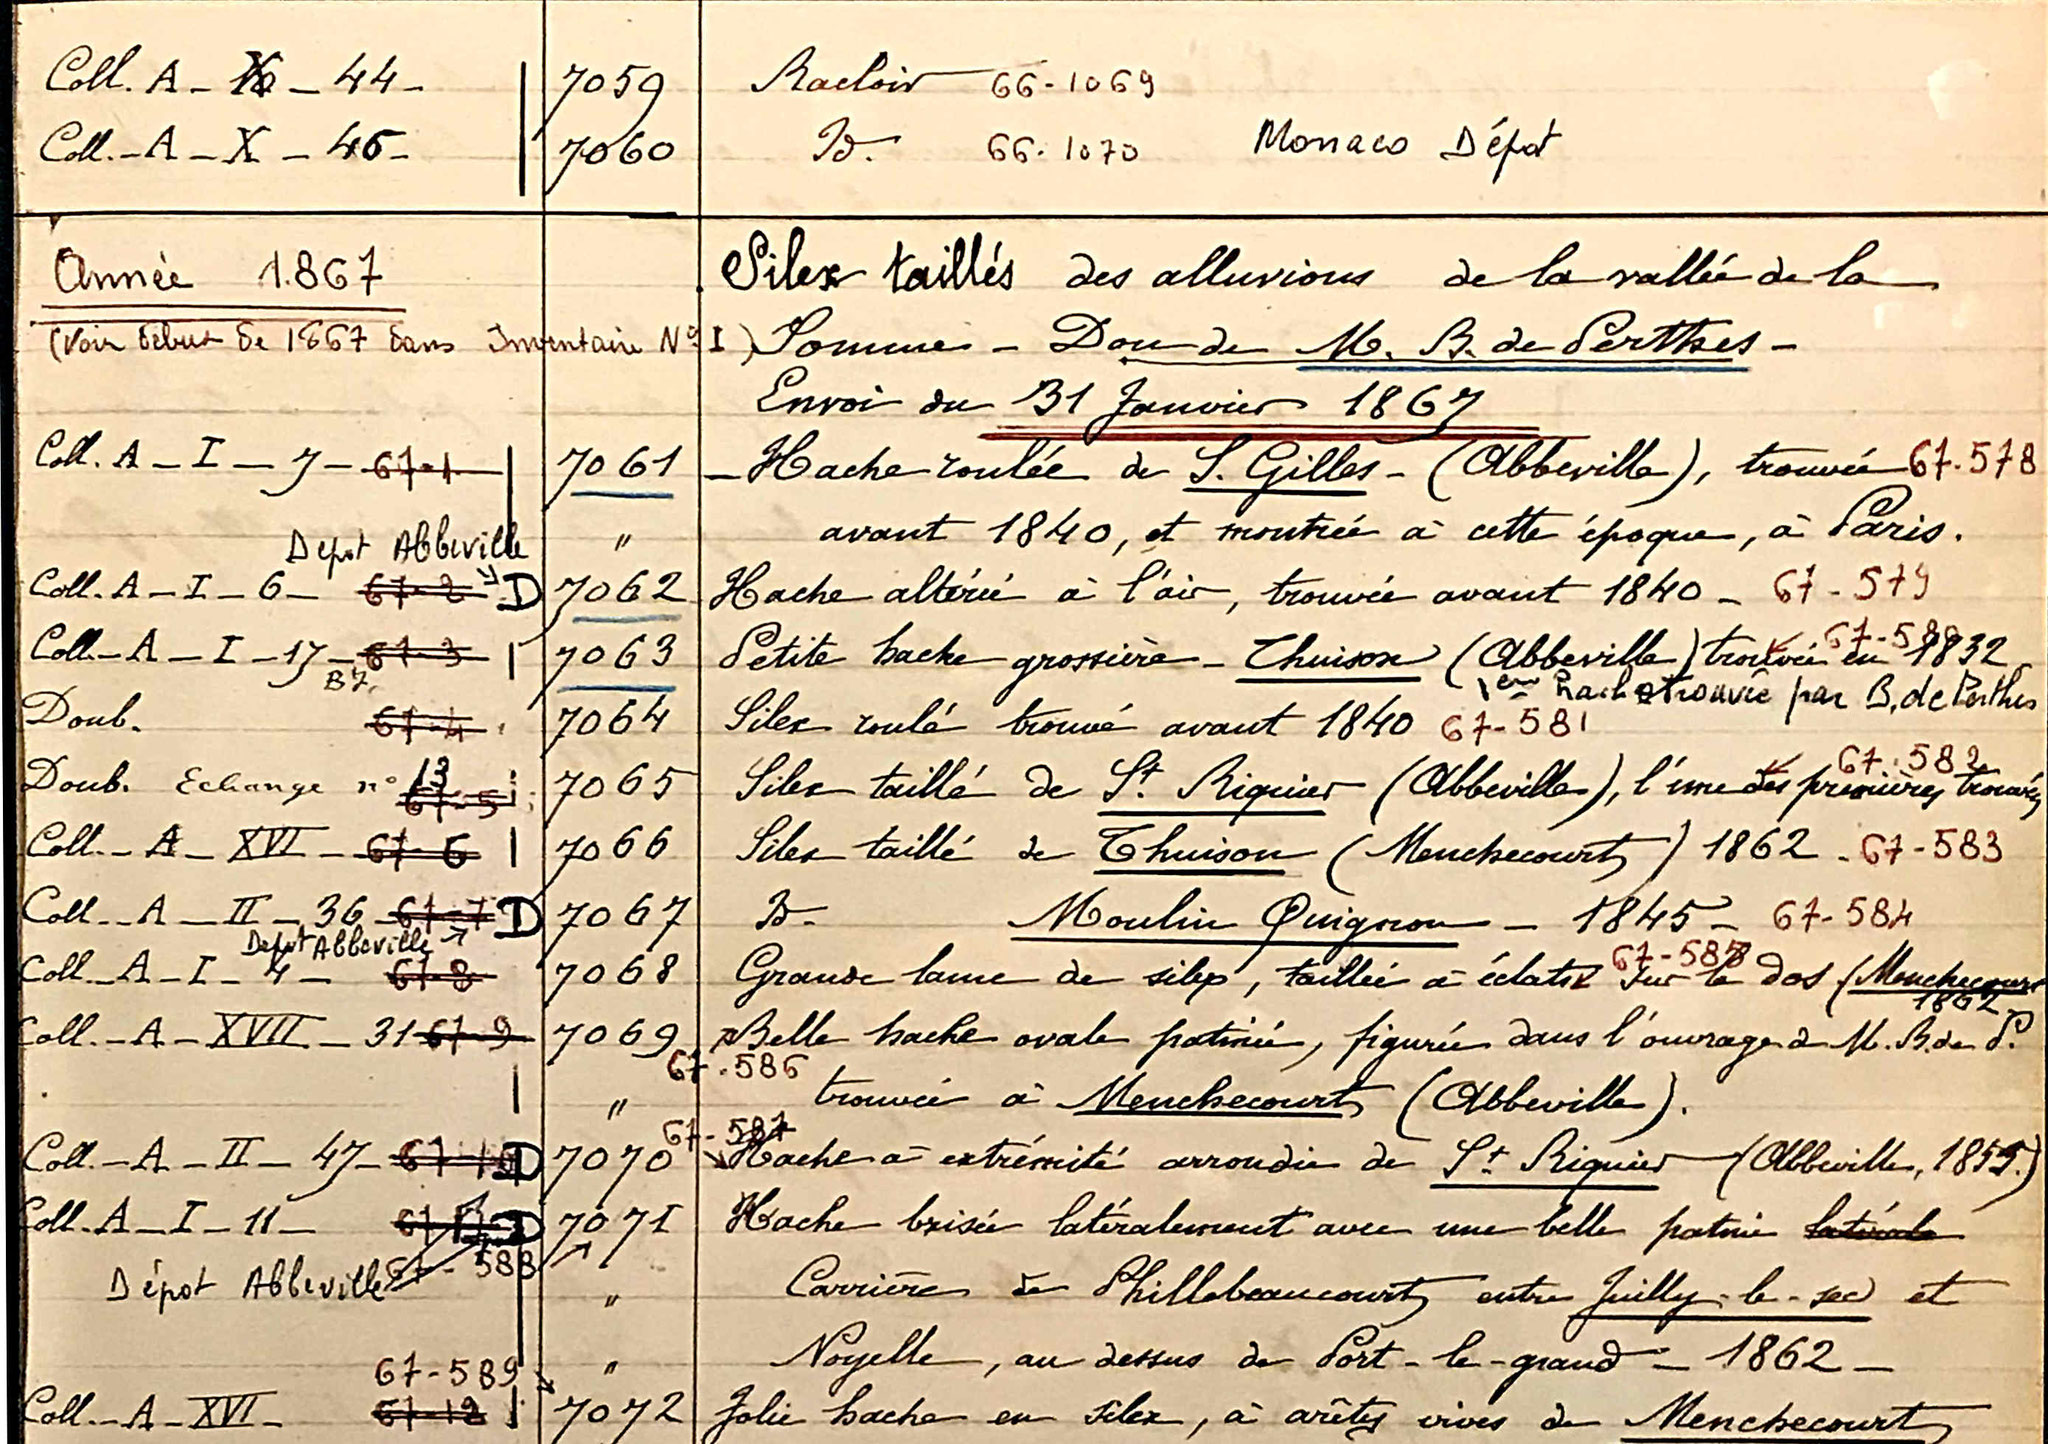 Coll. A - X - 44 - 7059 Racloir 66-1069
Coll. - A - X - 45 - 7060 Id. 66-1070 Monaco Dépot
Année 1867 Silex taillés des alluvions de la vallée de la
(Voir début de 1867 dans Inventaire No I) Somme - Don de M. B. de Perthes -
Envoi du 31 Janvier 1867
Coll. A - I - 7 - 67-1 7061 - Hache roulée de S. Gilles - (Abbeville), trouvée 67-578
Depot Abbeville " avant 1840, et montrée à cette époque, à Paris.
Coll. A - I - 6 - 67-2 D 7062 Hache altérée à l'air, trouvée avant 1840 - 67-579
67-580
Coll. - A - I - 17 - 67-3 7063 Petite hache grossière - Thuison (Abbeville) trouvée en 1832
B7. 1ere hache trouvée par B. de Perthes
Doub. 67-4 7064 Silex roulé trouvé avant 1840 67-581
67-582
Doub. Echange n° 13 67-5 7065 Silex taillé de St. Riquier (Abbeville), l'une des premières trouvées
Coll. - A - XVI - 67-6 7066 Silex taillé de Thuison (Menchecourt) 1862 - 67-583
Coll. - A - II - 36 - 67-7 D 7067 Id. Moulin Quignon - 1845 - 67-584
Depot Abbeville 67-585
Coll. - A - I - 4 - 67-8 7068 Grande lame de silex, taillée à éclats sur le dos (Menchecourt
1862
Coll. - A - XVII - 31 67-9 7069 Belle hache ovale patinée, figurée dans l'ouvrage de M. B. de P.
67-586
" trouvée à Menchecourt (Abbeville).
67-587
Coll. - A - II - 47 - 67-10 D 7070 Hache à extrémité arrondie de St. Riquier (Abbeville, 1855.)
Coll. A - I - 11 - 67-11 D 7071 Hache brisée latéralement avec une belle patine latérale
Dépot Abbeville 67-588 " Carrière de Phillebeaucourt, entre Juilly-le-sec et
" Noyelle, au dessus de Port-le-grand - 1862 -
67-589
Coll. - A - XVI - 67-12 7072 Jolie hache en silex, à arêtes vives de Menchecourt,